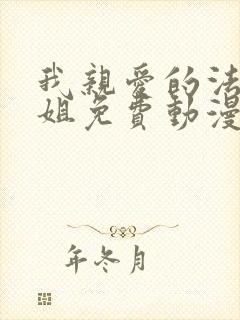 我親愛的法
姐免費動漫
年冬月